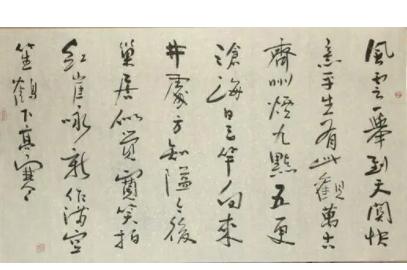 風雲一舉到天關快
意平生有此觀萬古
齊州煙九點五更
滄海日三竿向來
井處方知隘今後
巢居似覺寬笑拍
紅崖咏新作滿空
笙鶴下高寒